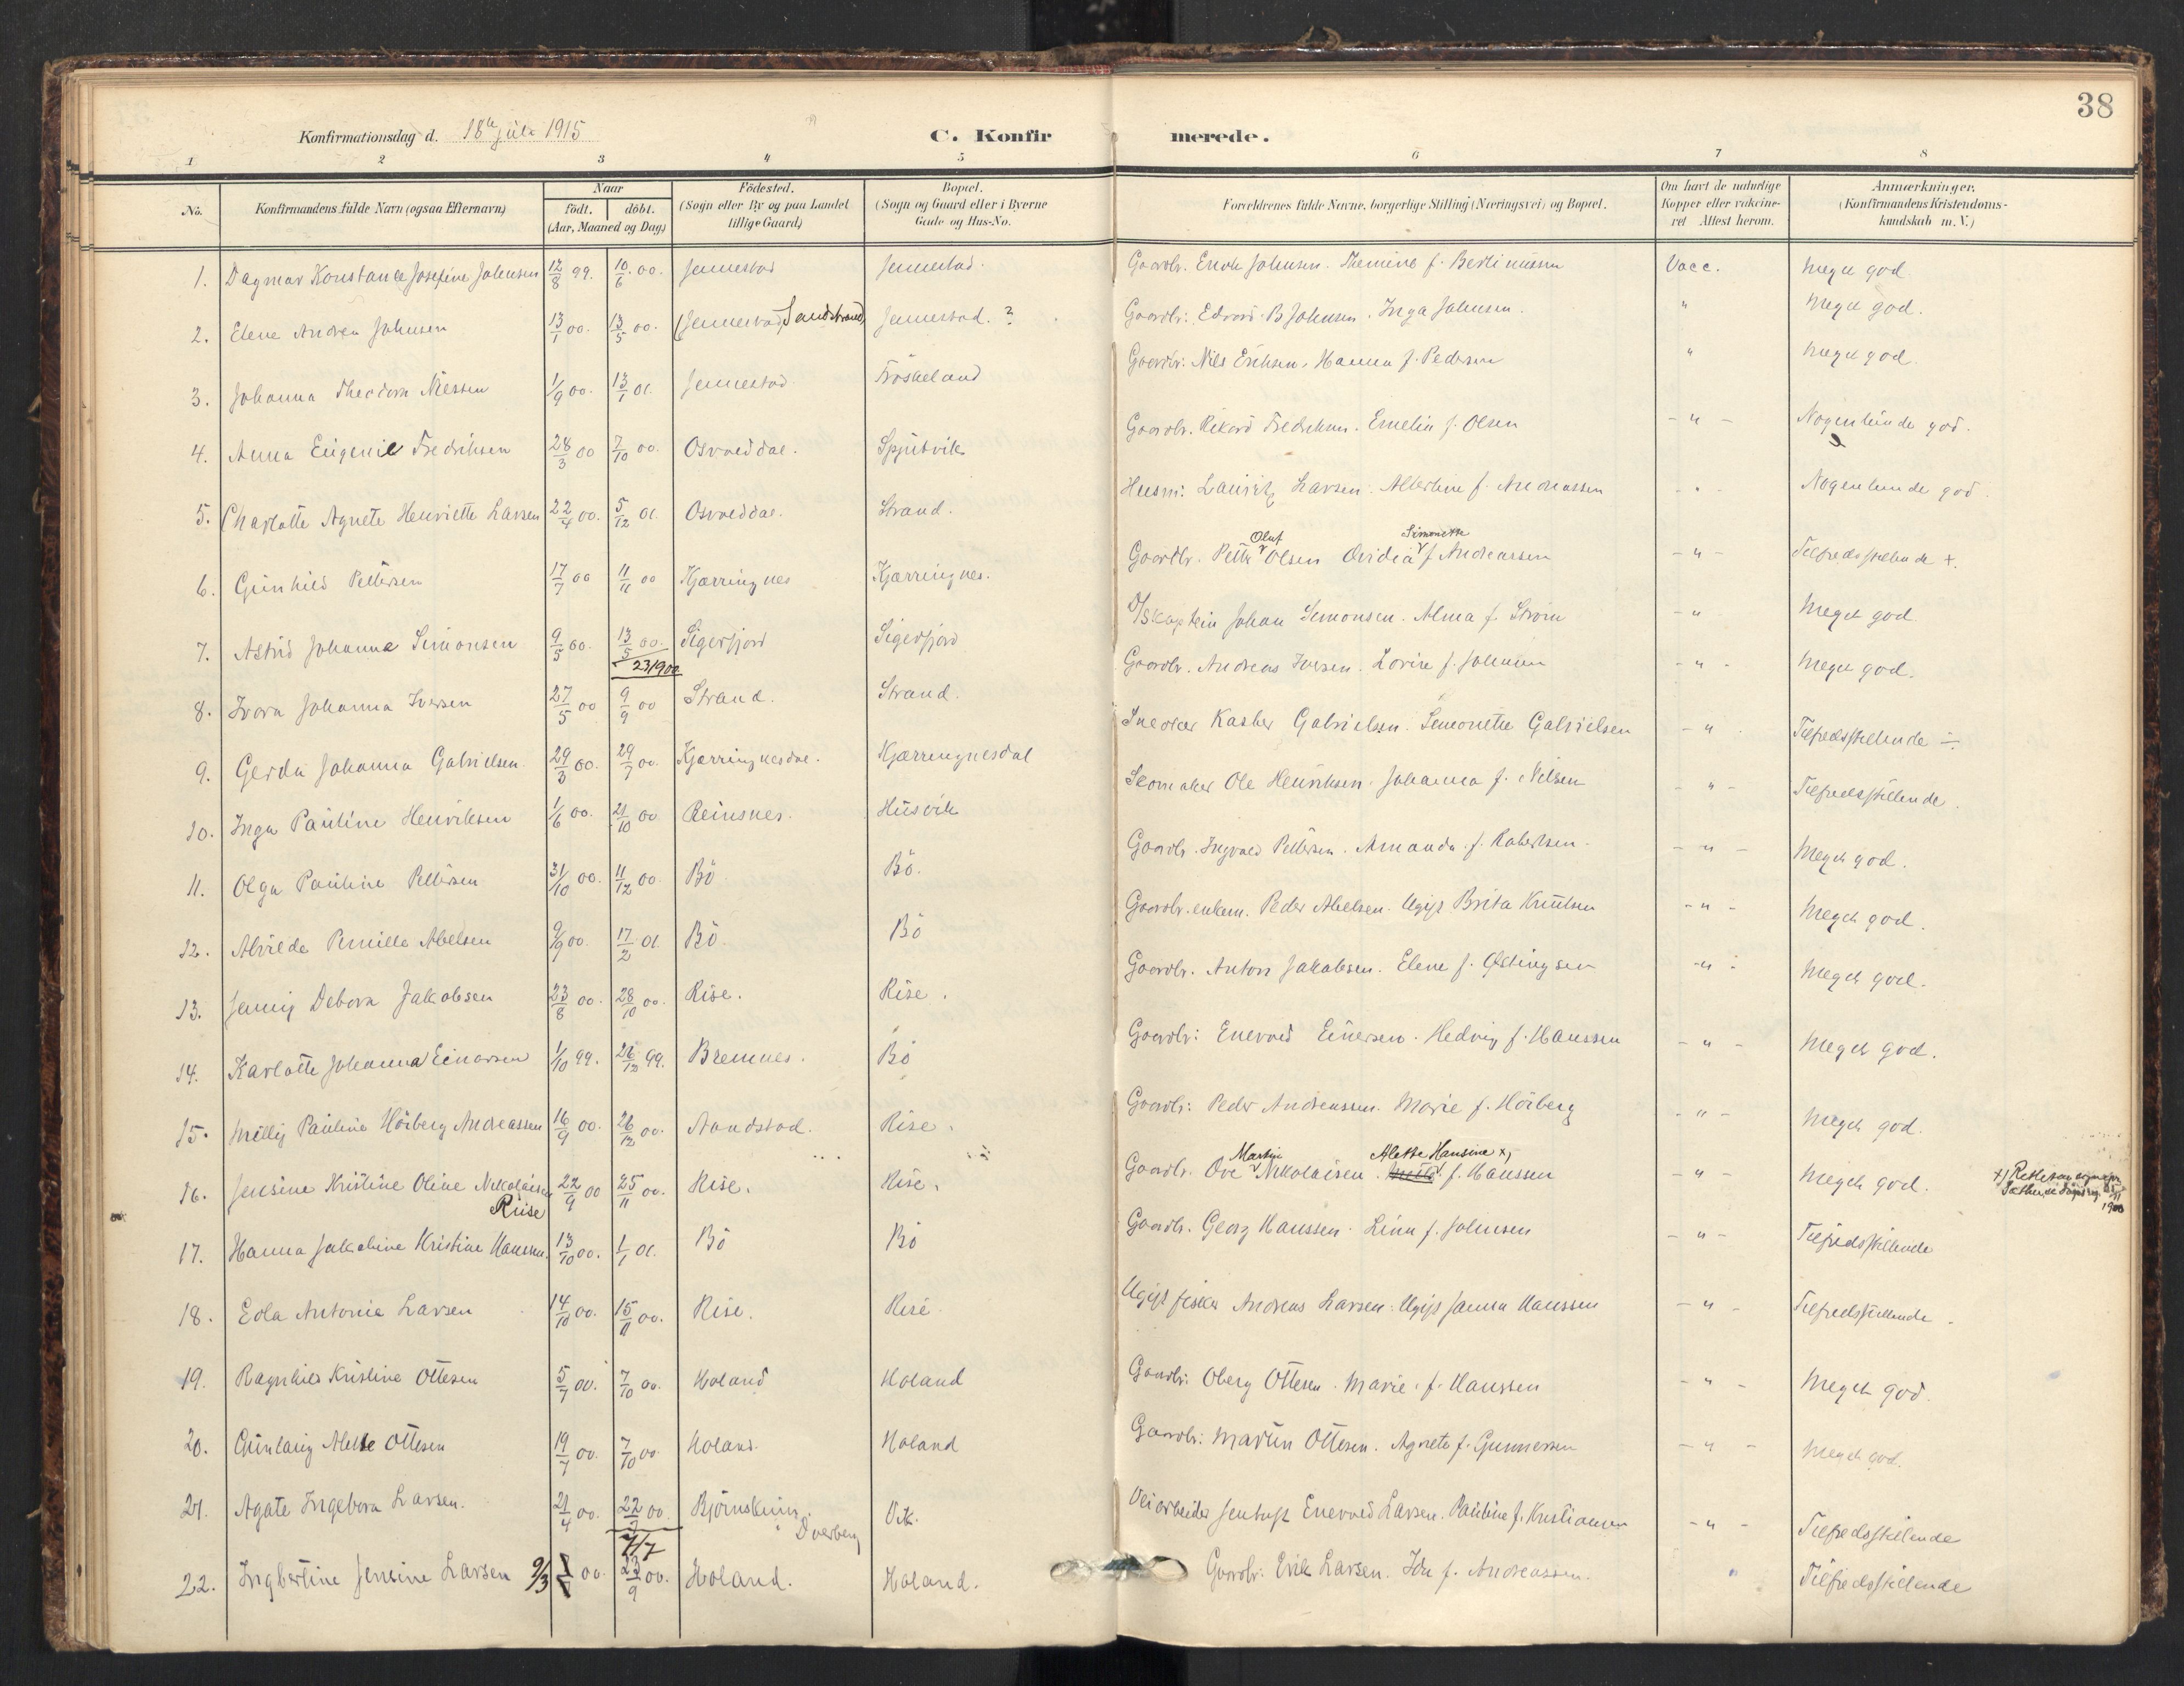 38
Konfirmationsdag d. 18de juli 1915
C. Konfirmerede.
1 2 3 4 5 6 7 8
No. | Konfirmandens fulde Navn (ogsaa Efternavn) | Naar födt. döbt. (Aar, Maaned og Dag) | Födested. (Sogn eller By og paa Landet tillige Gaard) | Bopæl. (Sogn og Gaard eller i Byerne Gade og Hus-No. | Forældrenes fulde Navne, borgerlige Stilling (Næringsvei) og Bopæl. | Om havt de naturlige Kopper eller vaccineret Attest herom. | Anmærkninger. (Konfirmandens Kristendomskundskab m. V.)
1. Dagmar Konstance Josefine Johnsen 12/8 99. 10/6 00. Jennestad Jennestad. Gaardbr. Enok Johnsen. f. Vacc. Meget god
2. Elene Andrea Johnsen 13/1 00. 13/5 00. (Jennestad) Sandstrand Jennestad. ? Gaardbr: Edvard B Johnsen. Inga Johnsen. " Meget god.
3. Johanna Theodora Nielsen 1/9 00. 13/1 01. Jennestad Fröskeland Gaardbr: Nils Eriksen. Hanna f. Pedersen " Meget god.
4. Anna Eugenie Fredriksen 28/3 00 7/10 00. Osvolddal. Spjutvik Gaardbr. Rikard Fredriksen. Emelie f. Olsen - " - Nogenlunde god.
5. Charlotte Agnete Henriette Larsen 22/4 00. 5/12 01. Osvolddal. Strand. Husm: Lauritz Larsen. Albertine f. Andreassen - " - Nogenlunde god.
6. Gunhild Pettersen 17/7 00 11/11 00 Kjærringnes Kjærringnes. Gaardbr. Petter Oluf Olsen Ovidia Simonette f. Andreassen - " - Tilfredsstillende +.
7. Astrid Johanna Simonsen 9/5 00. 13/5 00. 23/9 00 Sigerfjord Sigerfjord D/Skaptein Johan Simonsen. Alma f. Strøm - " Meget god
8. Ivara Johanna Iversen 27/5 00 9/9 00 Strand. Strand. Gaardbr. Andreas Iversen. Lovise f. Johnsen - " - Meget god.
9. Gerda Johanna Gabrielsen 29/3 00. 29/7 00. Kjærringnesdal. Kjærringnesdal Snedker Kasber Gabrielsen. Simonette Gabrielsen - " - Tilfredsstillende ÷
10. Inga Pauline Henriksen 1/6 00. 21/10 00 Reinsnes. Husvik Skomaker Ole Henriksen. Johanna f. Nilsen - " - Tilfredsstillende.
11. Olga Pauline Pettersen 31/10 00. 11/12 00. Bö Bö. Gaardbr. Ingvald Pettersen. Amanda f. Robertsen. - " - Meget god.
12. Alvilde Pernille Abelsen 9/9 00. 17/2 01. Bö. Bö Gaardbr. enkem. Peder Abelsen. Ugift Brita Knutsen - " - Meget god.
13. Jenny Debora Jakobsen 23/8 00. 28/10 00. Rise. Rise. Gaardbr. Anton Jakobsen. Elene f. Østingsen - " - Meget god.
14. Karlotte Johanna Einarsen 1/10 99. 26/12 99. Bremnes. Bö Gaardbr: Enevold Einersen. Hedvig f. Hanssen - " - Meget god.
15. Milly Pauline Höiberg Andreassen 16/9 00. 26/12 00. Aandstad. Rise. Gaardbr: Peder Andreassen. Marie f. Höiberg - " - Meget god.
16. Jensine Kristine Oline Nikolaisen Riise 22/9 00 25/11 00. Rise. Rise. Gaardbr. Ove Martin Nikolaisen. Alette Hansine x) f. Hanssen - " - Meget god. x) Rettet 1900
17. Hanna Jakobine Kristine Hanssen. 13/10 00. 1/1 01. Bö Bö Gaardbr. Georg Hanssen. Lina f. Johnsen - " - Tilfredsstillende
18. Eola Antonie Larsen 14/10 00. 15/11 00. Rise. Rise Ugift fisker Andreas Larsen. Ugift Janna Hanssen - " - Tilfredsstillende.
19. Ragnhild Kristine Ottesen 5/7 00. 7/10 00. Holand Holand Gaardbr: Oberg Ottesen. Marie f. Hanssen - " - Meget god.
20. Gunlaug Alette Ottesen 19/7 00. 7/10 00 Holand. Holand Gaardbr: Martin Ottesen. Agnete f. Gunnersen - " - Meget god.
21. Agate Ingebora Larsen. 21/4 00. 22/7 00. 7/7 Björnskinn. Dverberg Vik. Veiarbeider Enevold Larsen. Pauline f. Kristiansen - " - Tilfredsstillende
22. Ingbertine Jensine Larsen 9/3 00. 23/9 00. Holand. Holand. Gaardbr. Erik Larsen. Ida f. Andreassen. " Tilfredsstillende